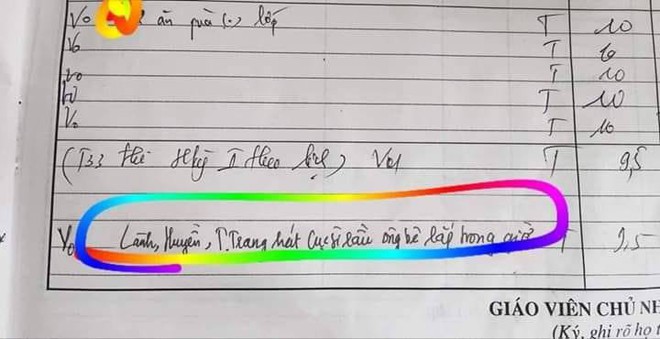 V0 ăn quà (.) lớp T 10
V0 T 10
V0 T 10
V0 T 10
V0 T 10
(T33 thi Hkỳ I theo lịch) V01 T 9,5
V0 Lành, Huyền, T.Trang hát Cục sì lầu ông bê lắp trong giờ T 9,5
GIÁO VIÊN CHỦ NH
(Ký, ghi rõ họ t